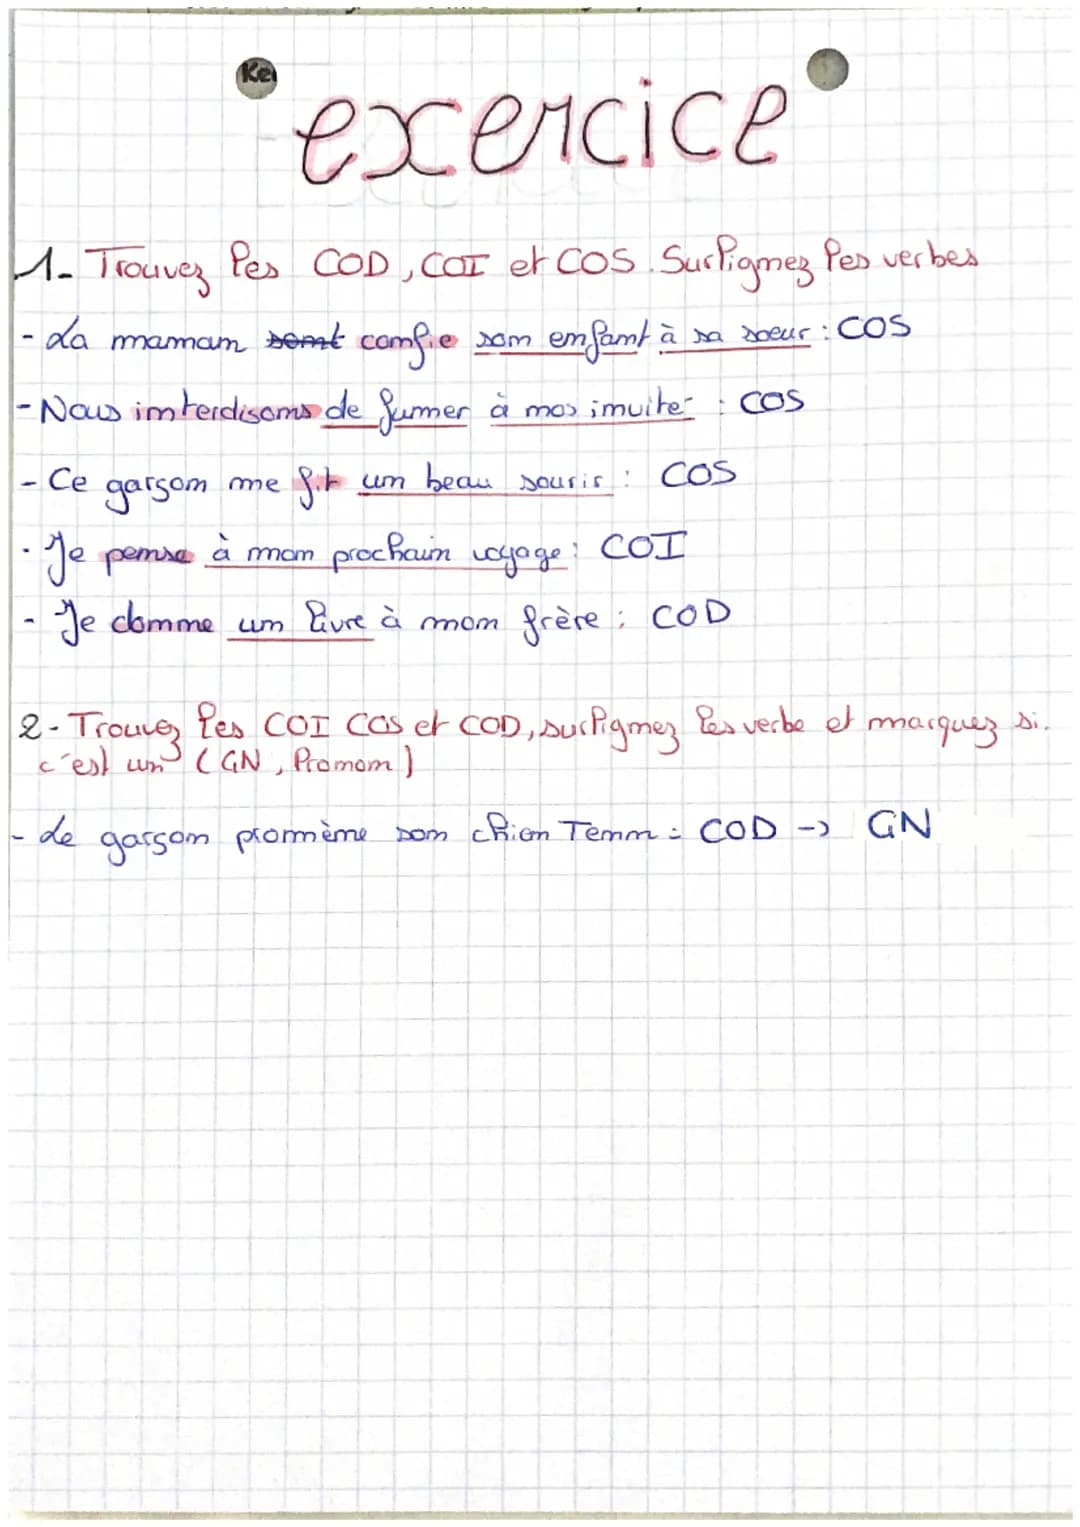 Ke
exercice
1- Trouvez les COD, COI et COS. Surlignez les verbes
- La maman sont confie son enfant à sa soeur : COS
- Nous interdisons de fumer à nos invité : COS
- Ce garson me fit un beau sourir : COS
- Je pense à mon prochain voyage : COI
- Je donne un livre à mon frère : COD
2- Trouvez les COI COS et COD, surlignez les verbe et marquez si
c'est un (GN, Pronom)
- Le garson promène son chien Tenn : COD -> GN